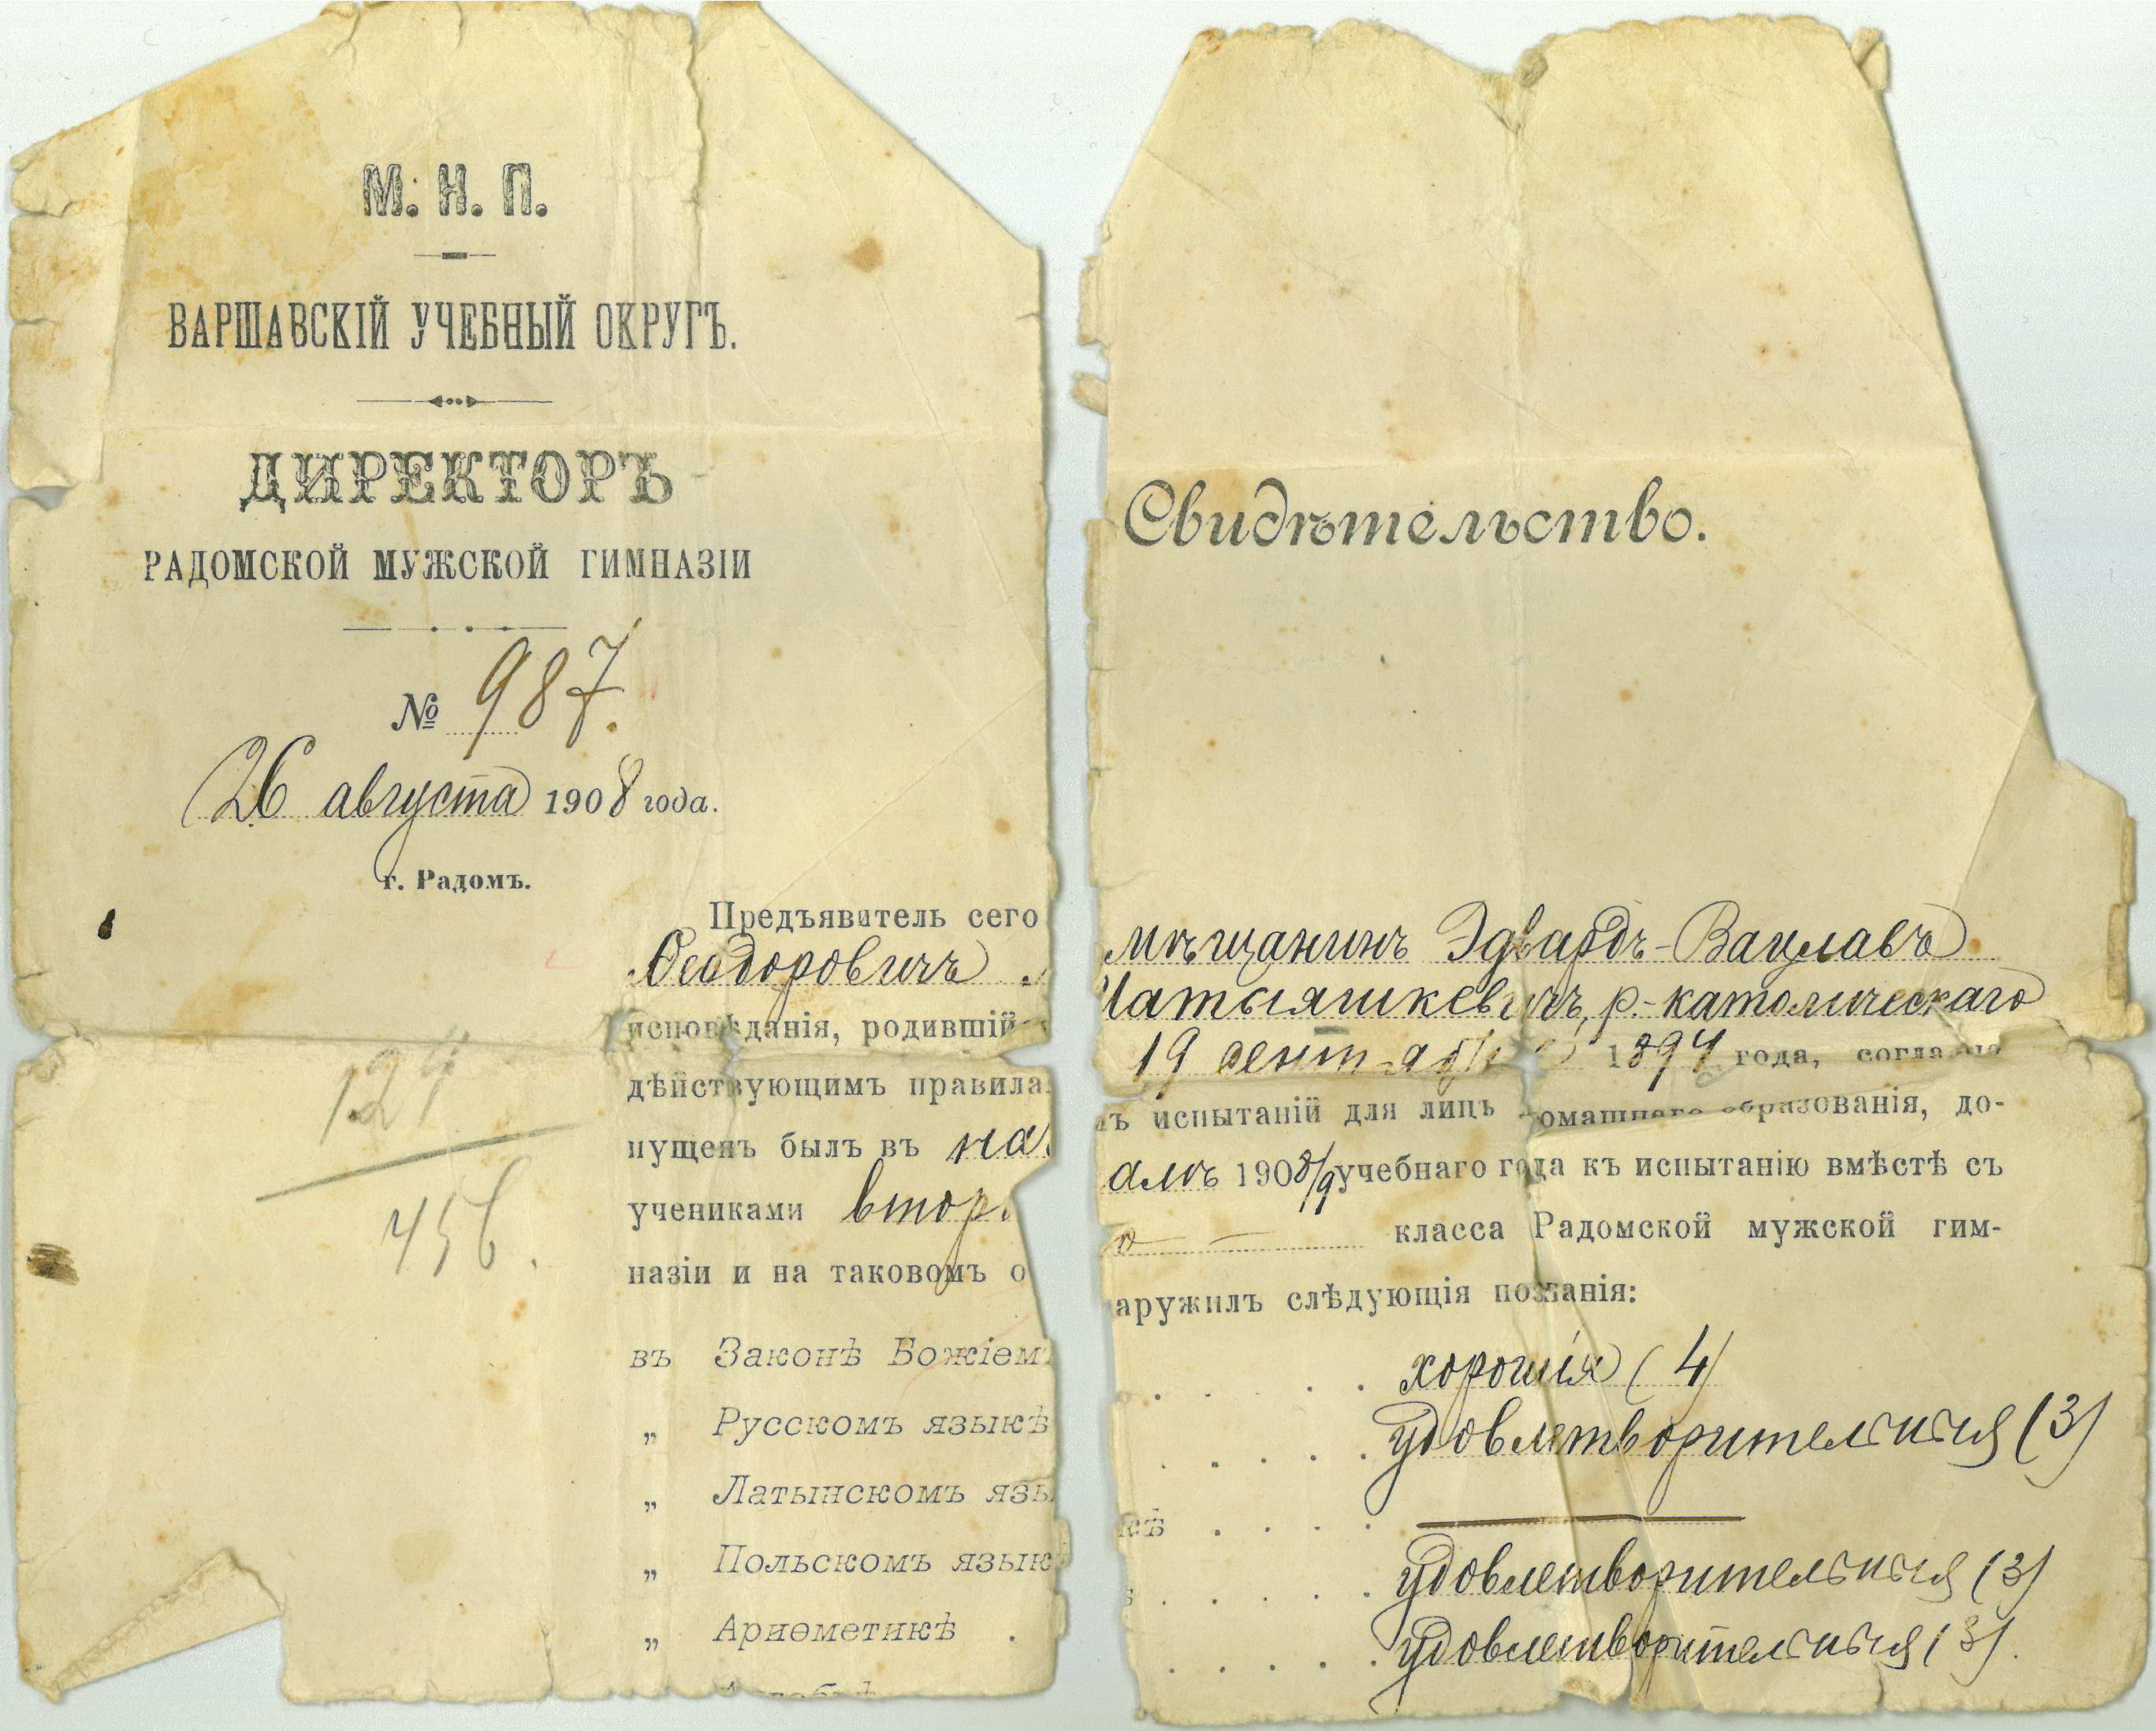 М. Н. П.
ВАРШАВСКІЙ УЧЕБНЫЙ ОКРУГЪ.
ДИРЕКТОРЪ
РАДОМСКОЙ МУЖСКОЙ ГИМНАЗІИ
№ 987.
26 августа 1908 года.
г. Радомъ.
Свидѣтельство.
Предъявитель сего мѣщанинъ Эдвардъ-Вацлавъ
Ѳеодоровичъ р.-католическаго
исповѣданія, родившій 19 сентября 1894 года, согласно
дѣйствующимъ правила ъ испытаній для лицъ домашнего образованія, до-
пущенъ былъ въ на алѣ 1908/9 учебнаго года къ испытанію вмѣстѣ съ
учениками втор класса Радомской мужской гим-
назіи и на таковомъ о аружилъ слѣдующія познанія:
въ Законѣ Божіем хорошія (4)
„ Русскомъ языкѣ удовлетворительныя (3)
„ Латынскомъ язы кѣ
„ Польскомъ язык удовлетворительныя (3)
„ Ариѳметикѣ удовлетворительныя (3).
129
456.